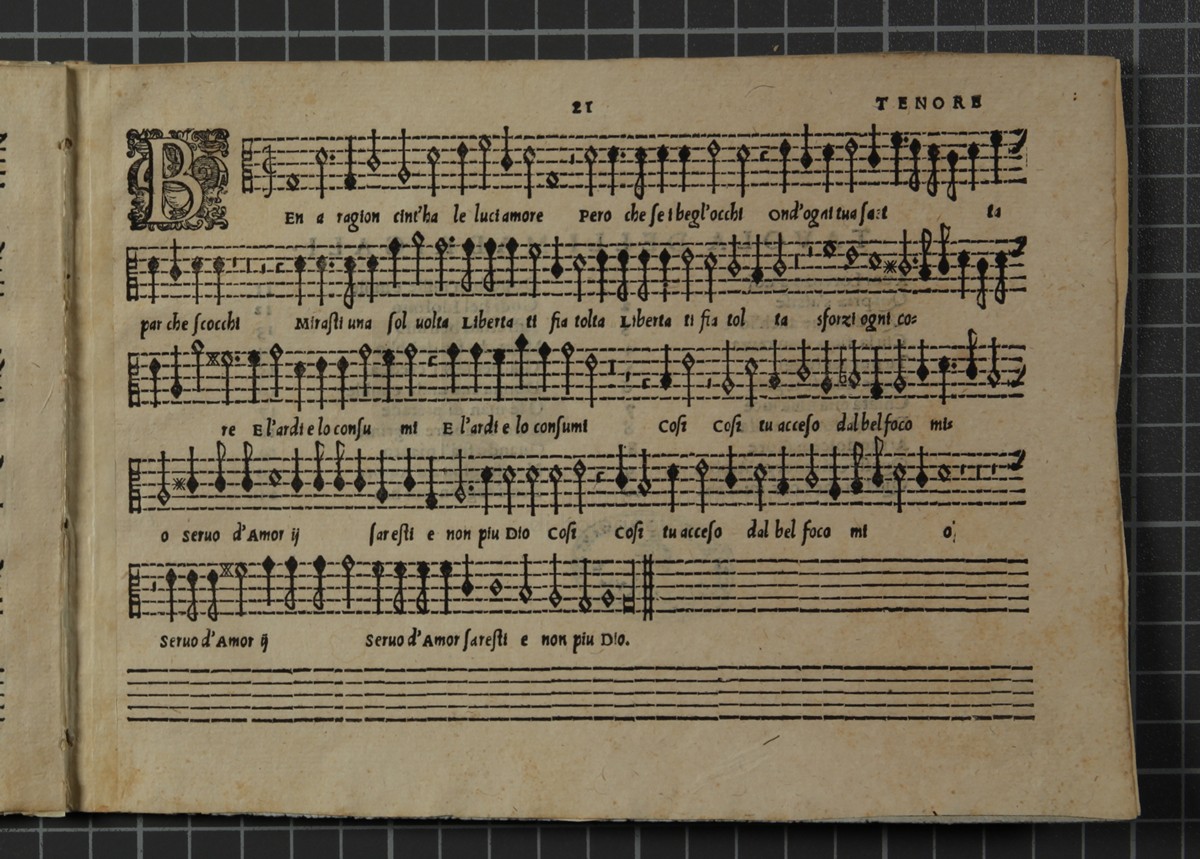 21
TENORE
BEn a ragion cint'ha le luci amore Pero che se i begl'occhi Ond'ogni tua saet ta
par che scocchi Mirasti una sol uolta Liberta ti fia tolta Liberta ti fia tol ta sforzi ogni co=
re E l'ardi e lo consu mi E l'ardi e lo consumi Cosi Cosi tu acceso dal bel foco mi=
o Seruo d'Amor ij saresti e non piu Dio Cosi Cosi tu acceso dal bel foco mi o
Seruo d'Amor ij Seruo d'Amor saresti e non piu Dio.